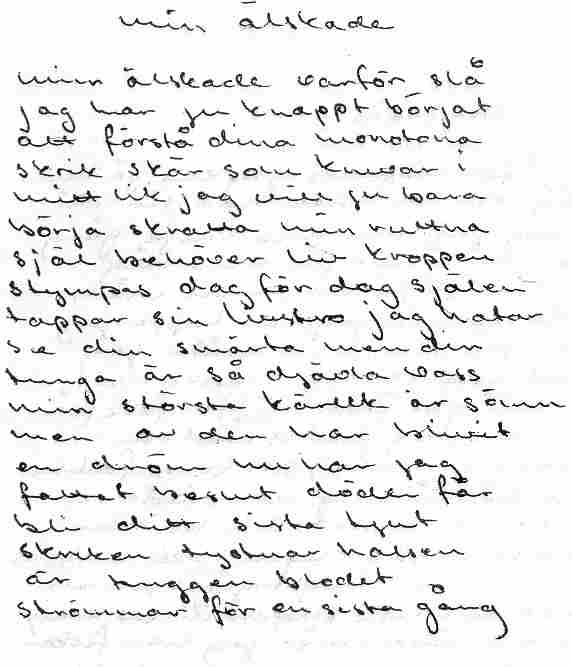 min älskade
minn älskade varför slå
jag har ju knappt börjat
att förstå dina monotona
skrik skär som knivar i
mitt lik jag vill ju bara
börja skratta min ruttna
själ behöver liv kroppen
stympas dag för dag själen
tappar sin livstro jag hatar
se din smärta men din
tunga är så djävla vass
min största kärlek är sömn
men av den har blivit
en dröm nu har jag
fattat beslut döden får
bli ditt sista tjut
skriken tystnar halsen
är tuggen blodet
strömmar för en sista gång